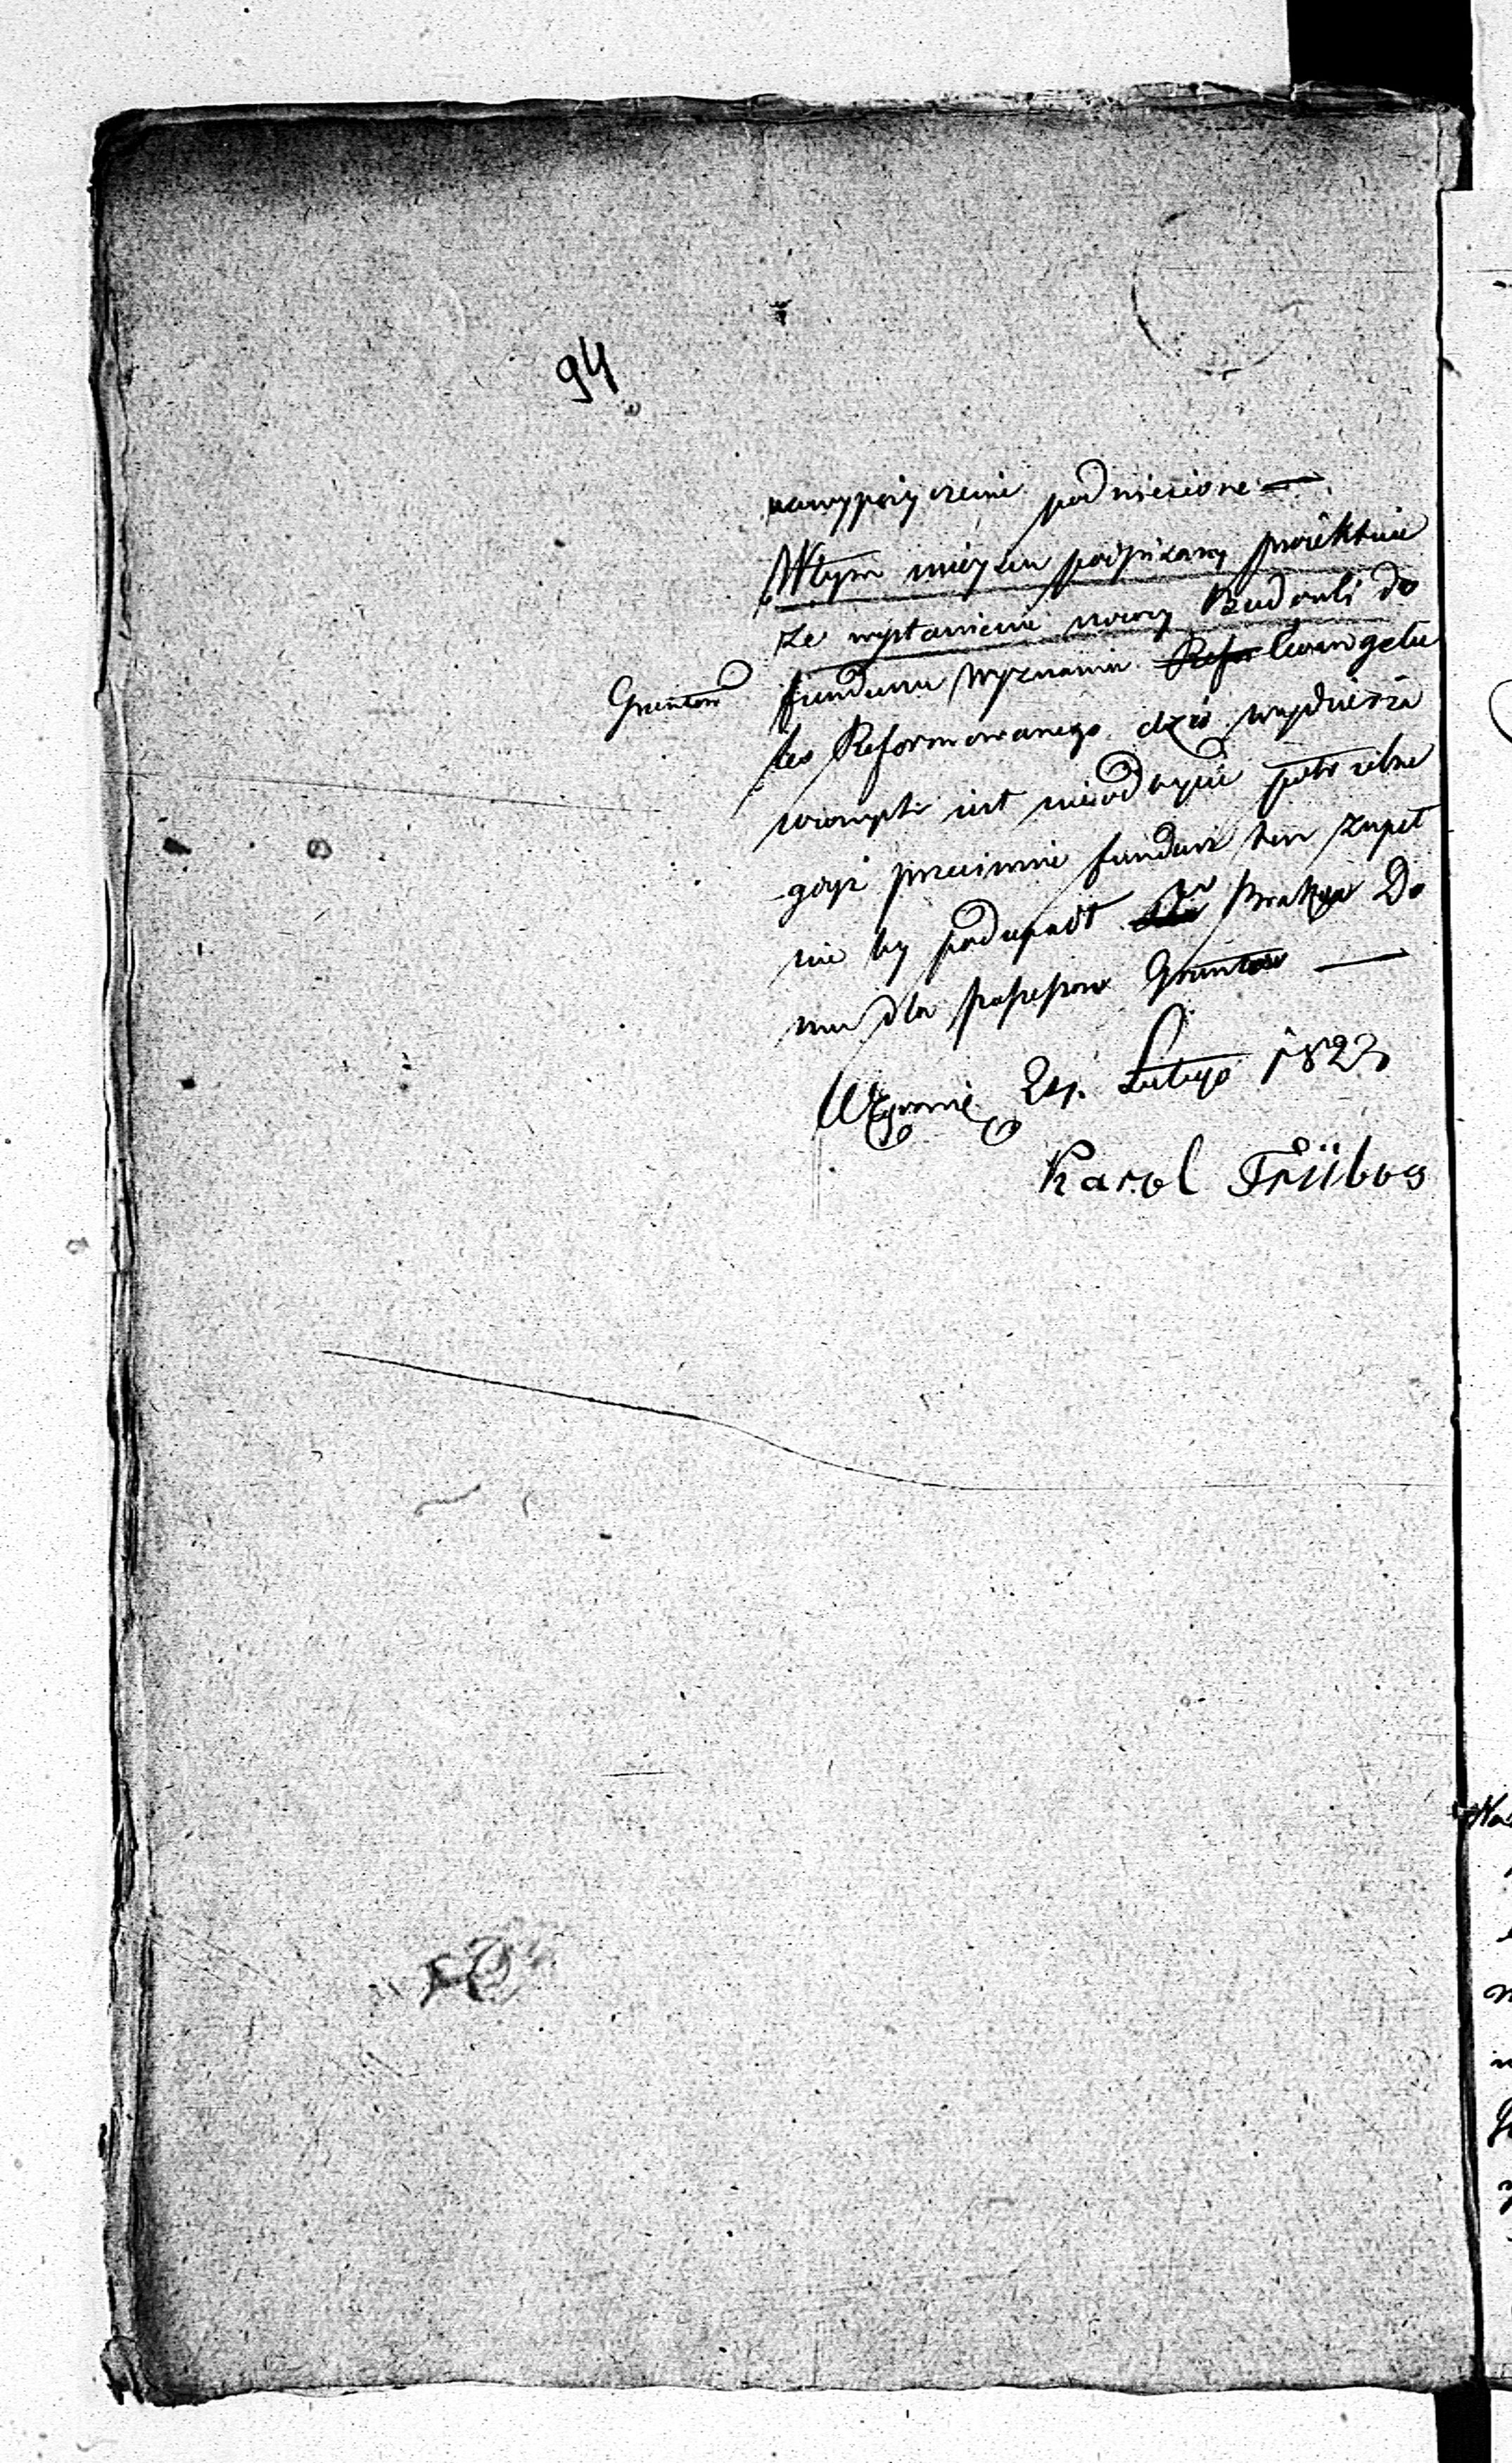 94
nawypożyczenie podniesione —
Wtym mieyscu podpisany proiektuie
ze wystawienie nowey Budowli do
Gruntow funduszu wyznania Refor Ewangelic
ko Reformowanego dziś wydzierża
wionych iest nieodbycie potrzebne
gdyż przeciwnie fundusz ten zupeł
nie by podupadł dla Braku Do
mu dla possessora Gruntow —
24. Lutego 1823
Karol Trübos